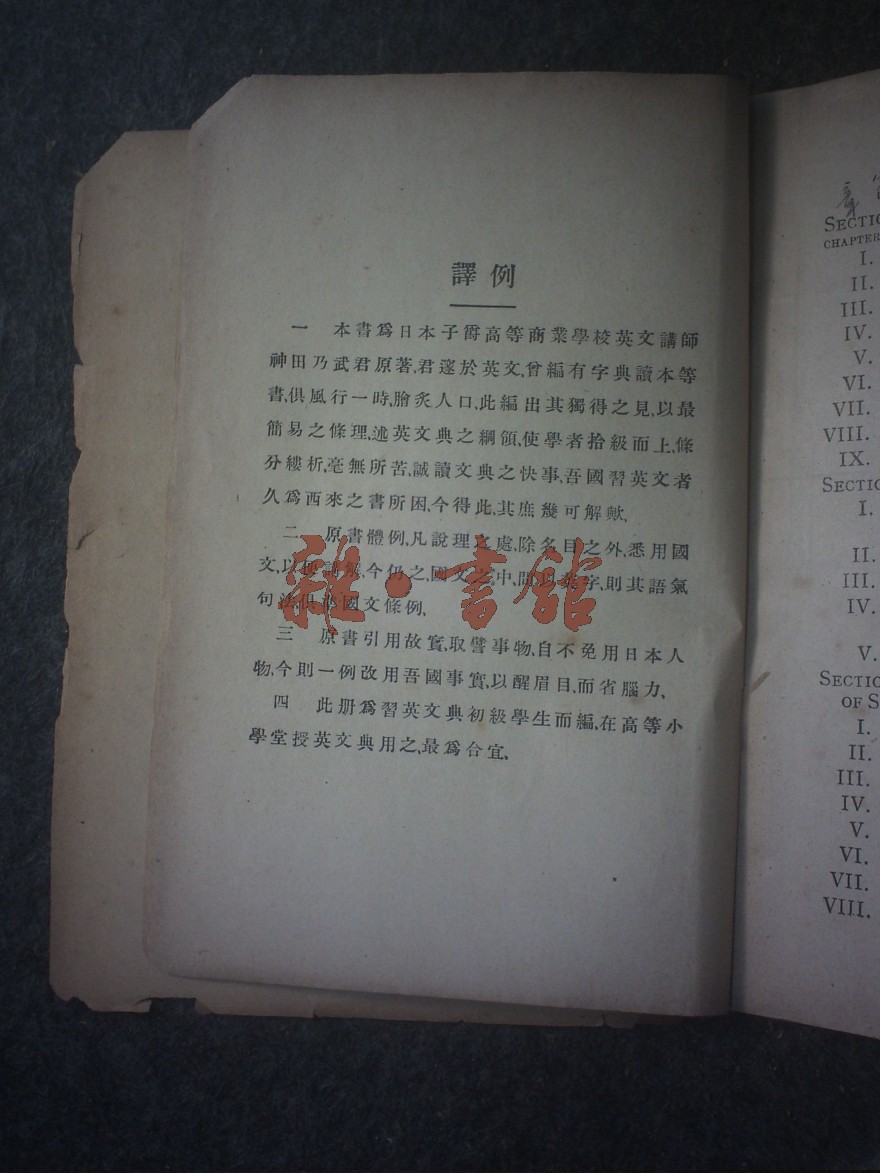 譯例
一 本書爲日本子爵高等商業學校英文講師
神田乃武君原著、君邃於英文、曾編有字典讀本等
書、俱風行一時、膾炙人口、此編出其獨得之見、以最
簡易之條理、述英文典之綱領、使學者拾級而上、條
分縷析、毫無所苦、誠讀文典之快事、吾國習英文者
久爲西來之書所困、今得此、其庶幾可解歟、
二 原書體例、凡說理之處、除名目之外、悉用國
文、以便講解、今仍之、國文之中、間以英字、則其語氣
句法、俱從國文條例、
三 原書引用故實、取譬事物、自不免用日本人
物、今則一例改用吾國事實、以醒眉目、而省腦力、
四 此册爲習英文典初級學生而編、在高等小
學堂授英文典用之、最爲合宜、
雜·書館
章
SECTIO
CHAPTER
I.
II.
III.
IV.
V.
VI.
VII.
VIII.
IX.
SECTIO
I.
II.
III.
IV.
V.
SECTIO
OF S
I.
II.
III.
IV.
V.
VI.
VII.
VIII.